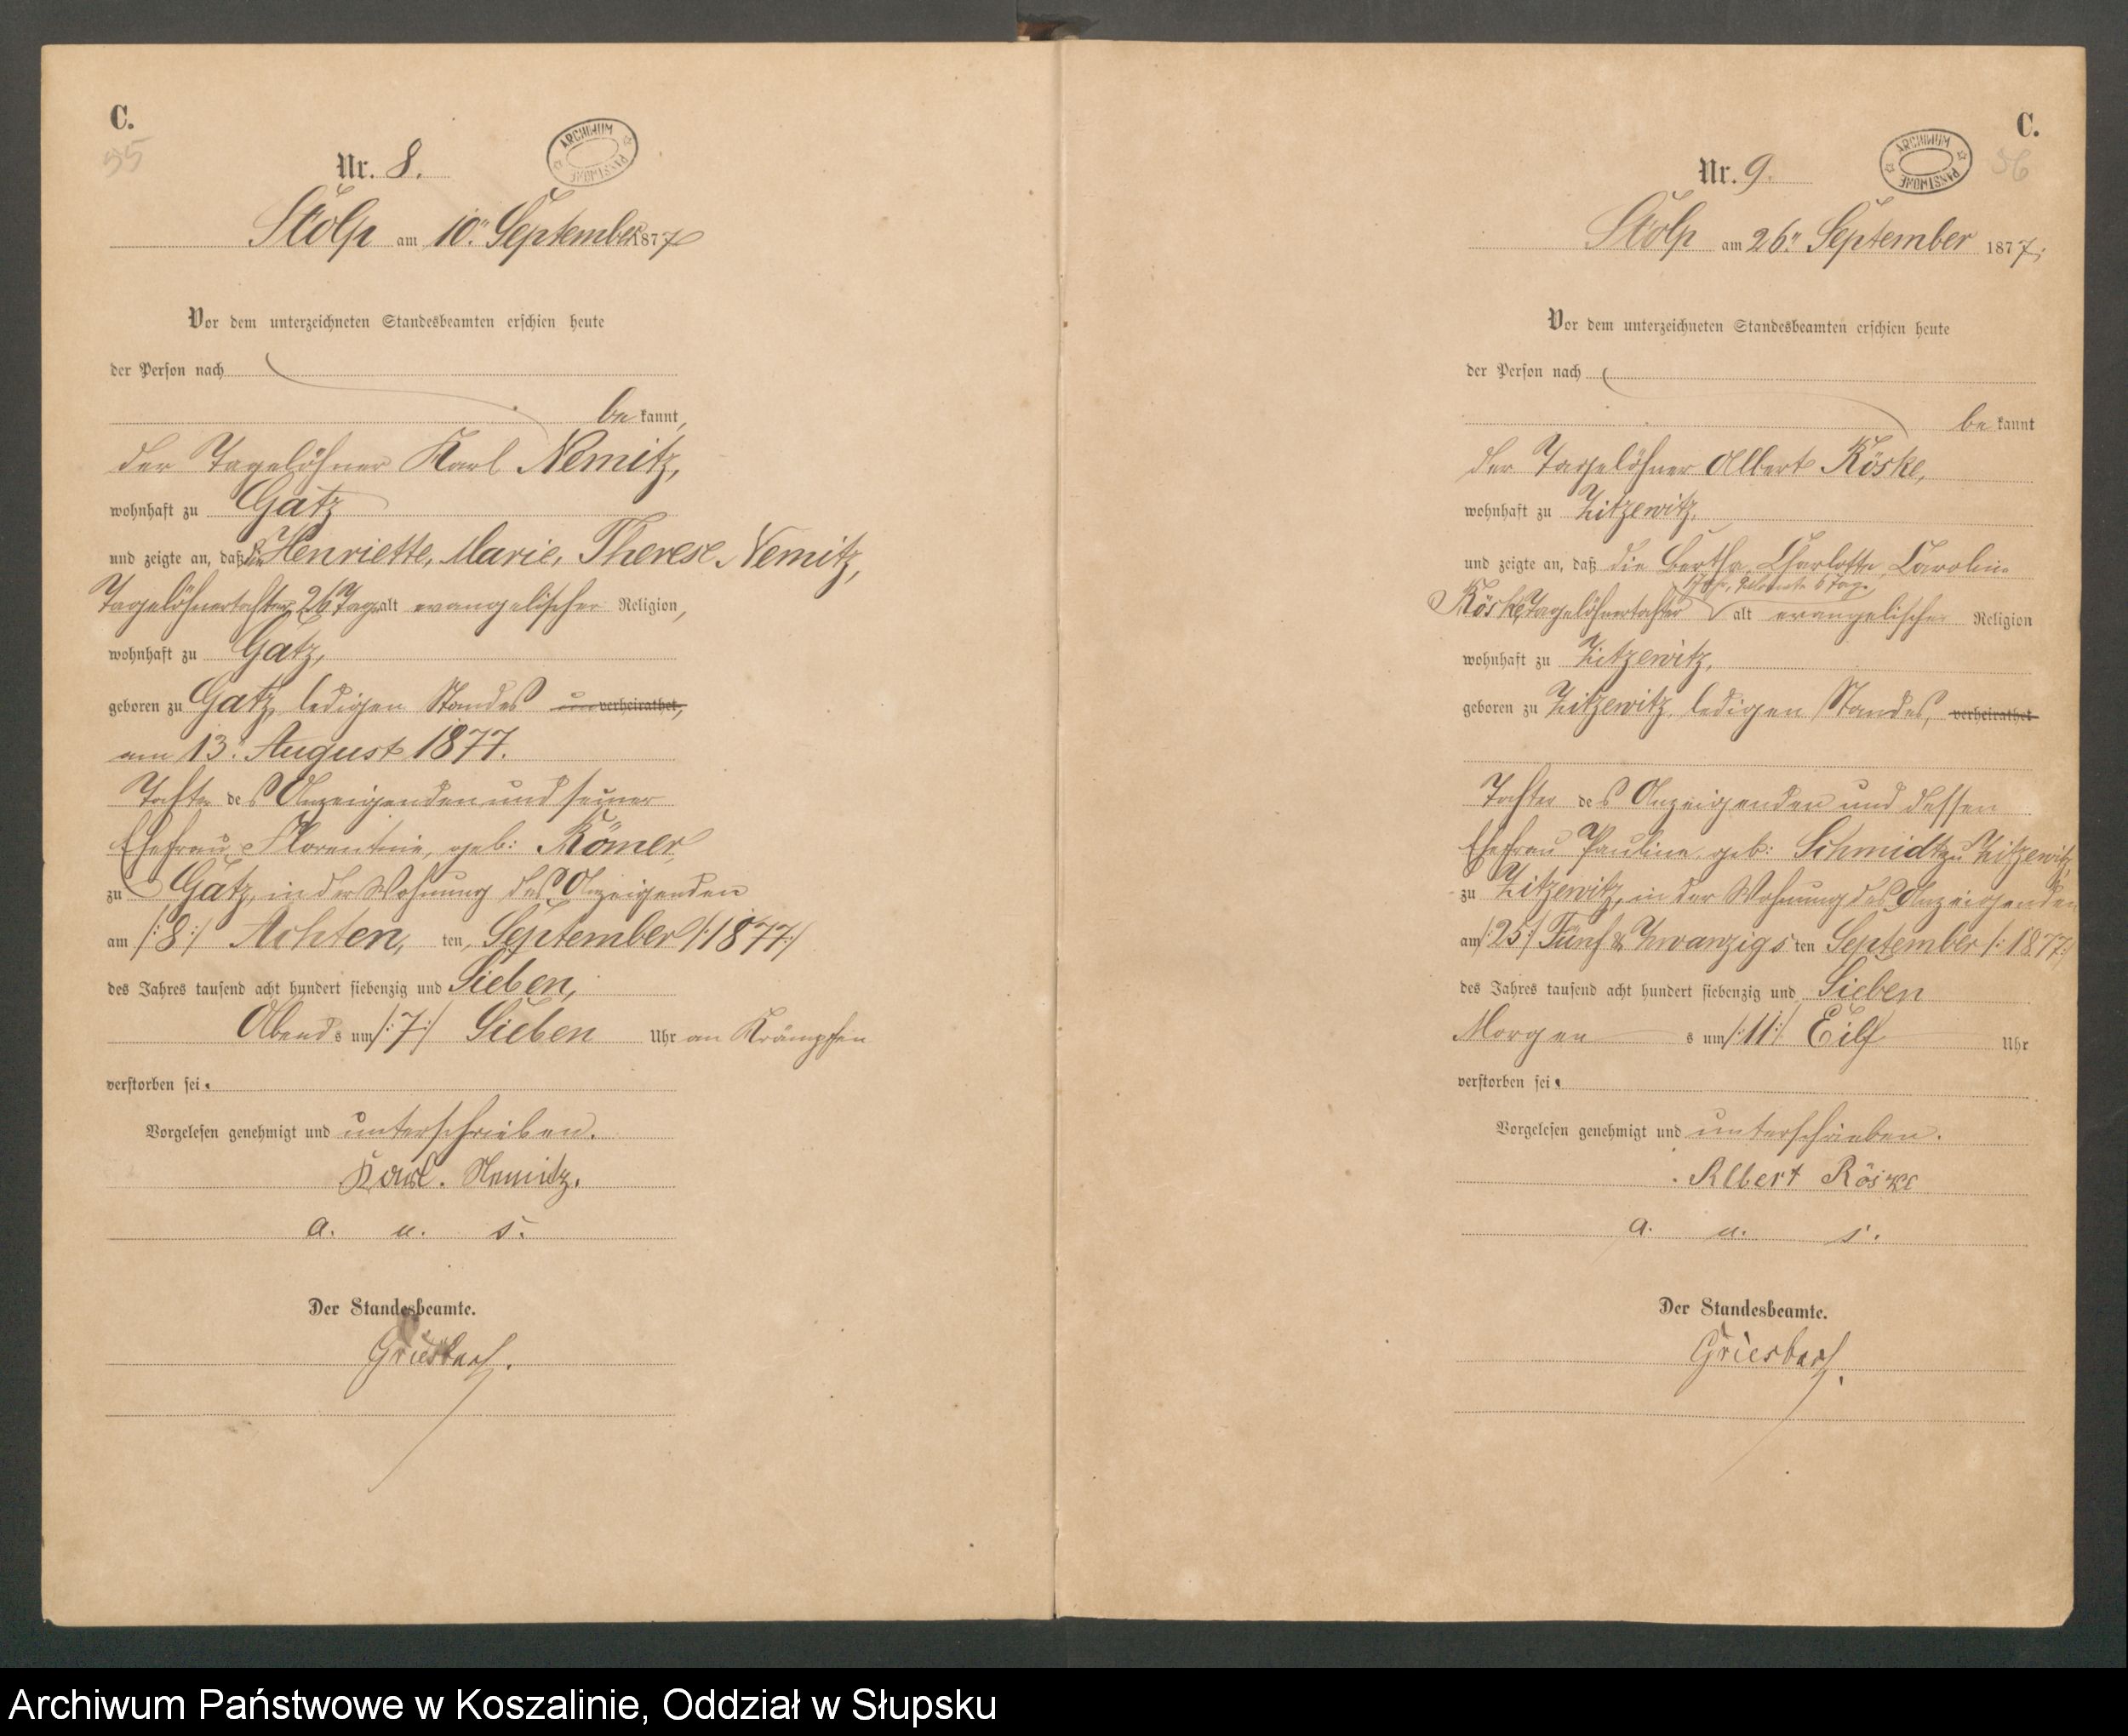 C.
55
Nr. 8.
ARCHIWUM PAŃSTWOWE
Stolp am 10ten September 1877
Vor dem unterzeichneten Standesbeamten erschien heute
der Person nach
be kannt,
der Tagelöhner Karl Nemitz,
wohnhaft zu Gatz
und zeigte an, daß die Henriette, Marie, Therese Nemitz,
Tagelöhnertochter, 26 Tage alt evangelischer Religion,
wohnhaft zu Gatz,
geboren zu Gatz, ledigen Standes unverheirathet,
am 13. August 1877.
Tochter des Anzeigenden und seiner
Ehefrau Florentine, geb: Römer
zu Gatz, in der Wohnung des Anzeigenden
am /:8:/ Achten, ten September /:1877:/
des Jahres tausend acht hundert siebenzig und Sieben,
Abends um /:7:/ Sieben Uhr an Krämpfen
verstorben sei.
Vorgelesen genehmigt und unterschrieben.
Karl. Nemitz.
a. u. s.
Der Standesbeamte.
Griesbach.
C.
56
Nr. 9.
ARCHIWUM PAŃSTWOWE
Stolp am 26ten September 1877,
Vor dem unterzeichneten Standesbeamten erschien heute
der Person nach
be kannt
der Tagelöhner Albert Röske,
wohnhaft zu Zitzewitz,
und zeigte an, daß die Bertha, Charlotte, Caroline
6 Tage
Röske, Tagelöhnertochter alt evangelischer Religion
wohnhaft zu Zitzewitz,
geboren zu Zitzewitz, ledigen Standes, verheirathet
Tochter des Anzeigenden und dessen
Ehefrau Pauline geb: Schmidt zu Zitzewitz,
zu Zitzewitz, in der Wohnung des Anzeigenden
am /:25:/ Fünf & Zwanzigs ten September /:1877:/
des Jahres tausend acht hundert siebenzig und Sieben
Morgen s um /:11:/ Eilf Uhr
verstorben sei.
Vorgelesen genehmigt und unterschrieben.
Albert Röske
a. u. s.
Der Standesbeamte.
Griesbach.
Archiwum Państwowe w Koszalinie, Oddział w Słupsku